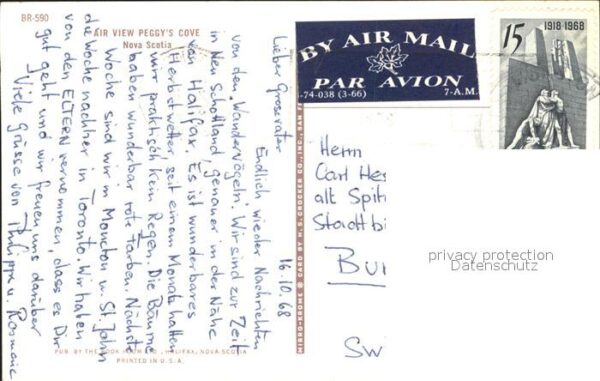 BR-590
AIR VIEW PEGGY'S COVE
Nova Scotia
16.10.68
Lieber Grossvater
Endlich wieder Nachrichten
von den "Wandervögeln". Wir sind zur Zeit
in Neu Schottland, genauer in der Nähe
von Halifax. Es ist wunderbares
Herbstwetter, seit einem Monat hatten
wir praktisch kein Regen. Die Bäume
haben wunderbar rote Farben. Nächste
Woche sind wir in Moncton u. St. John
die Woche nachher in Toronto. Wir haben
von den ELTERN vernommen, dass es Dir
gut geht und wir freuen uns darüber
Viele Grüsse von Philippe u. Rosmarie
PUB. BY THE BOOK ROOM LTD., HALIFAX, NOVA SCOTIA
PRINTED IN U.S.A.
MIRRO-KROME ® CARD BY H. S. CROCKER CO., INC., SAN
BY AIR MAIL
PAR AVION
-74-038 (3-66)
7-A.M.
15
1918-1968
Herrn
Carl Hes
alt Spit
Stadtbi
Bu
Sw
privacy protection
Datenschutz